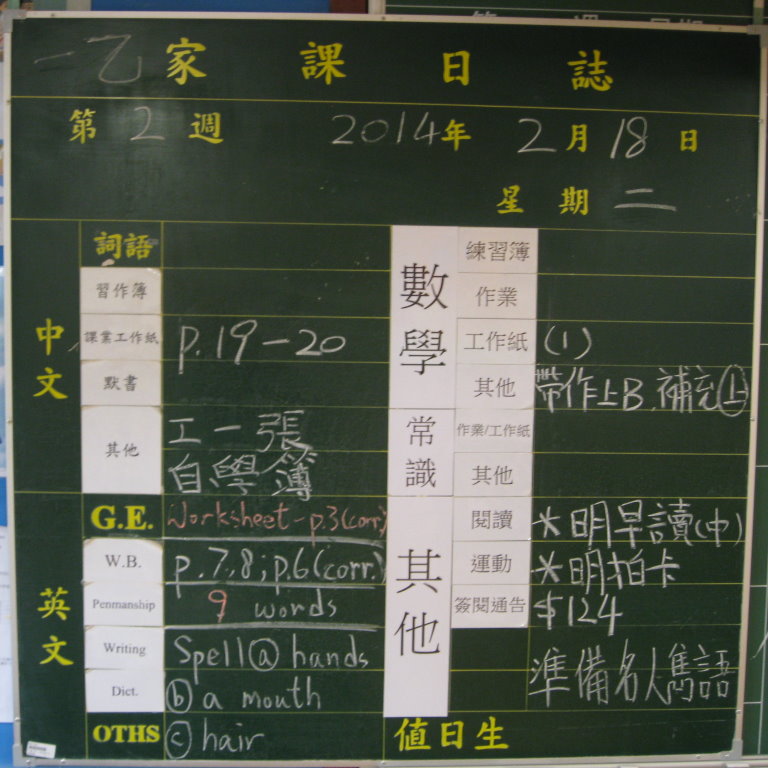 一乙家課日誌
第2週 2014年2月18日
星期二
中文
詞語
習作簿
課業工作紙 p.19-20
默書
其他 工一張
自學簿
英文
G.E. Worksheet-p.3(corr.)
W.B. p.7,8;p.6(corr.)
Penmanship 9 words
Writing Spellⓐ hands
Dict. ⓑ a mouth
OTHS ⓒ hair
數學
練習簿
作業
工作紙 (1)
其他 帶作上B.補充㊤
常識
作業/工作紙
其他
其他
閱讀 *明早讀(中)
運動 *明拍卡
簽閱通告 $124
準備名人雋語
值日生